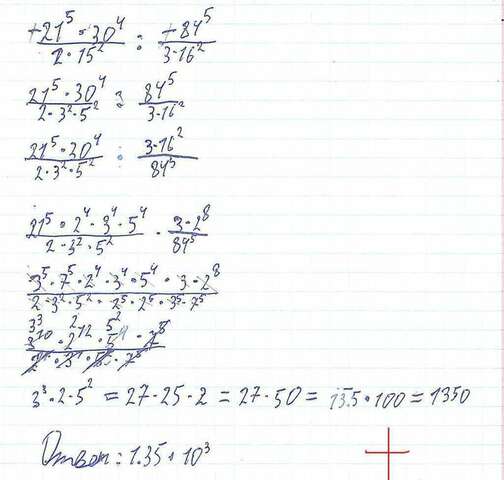 +21⁵·30⁴ / 2·15² : +84⁵ / 3·16²
21⁵·30⁴ / 2·3²·5² : 84⁵ / 3·16²
21⁵·30⁴ / 2·3²·5² : 3·16² / 84⁵
21⁵·2⁴·3⁴·5⁴ / 2·3²·5² · 3·2⁸ / 84⁵
3⁵·7⁵·2⁴·3⁴·5⁴·3·2⁸ / 2·3²·5²·2⁵·2⁵·3⁵·7⁵
3³ 2 5²
3¹⁰·2¹²·5⁴·7⁵
3³·2·5² = 27·25·2 = 27·50 = 13.5·100 = 1350
Ответ: 1.35·10³